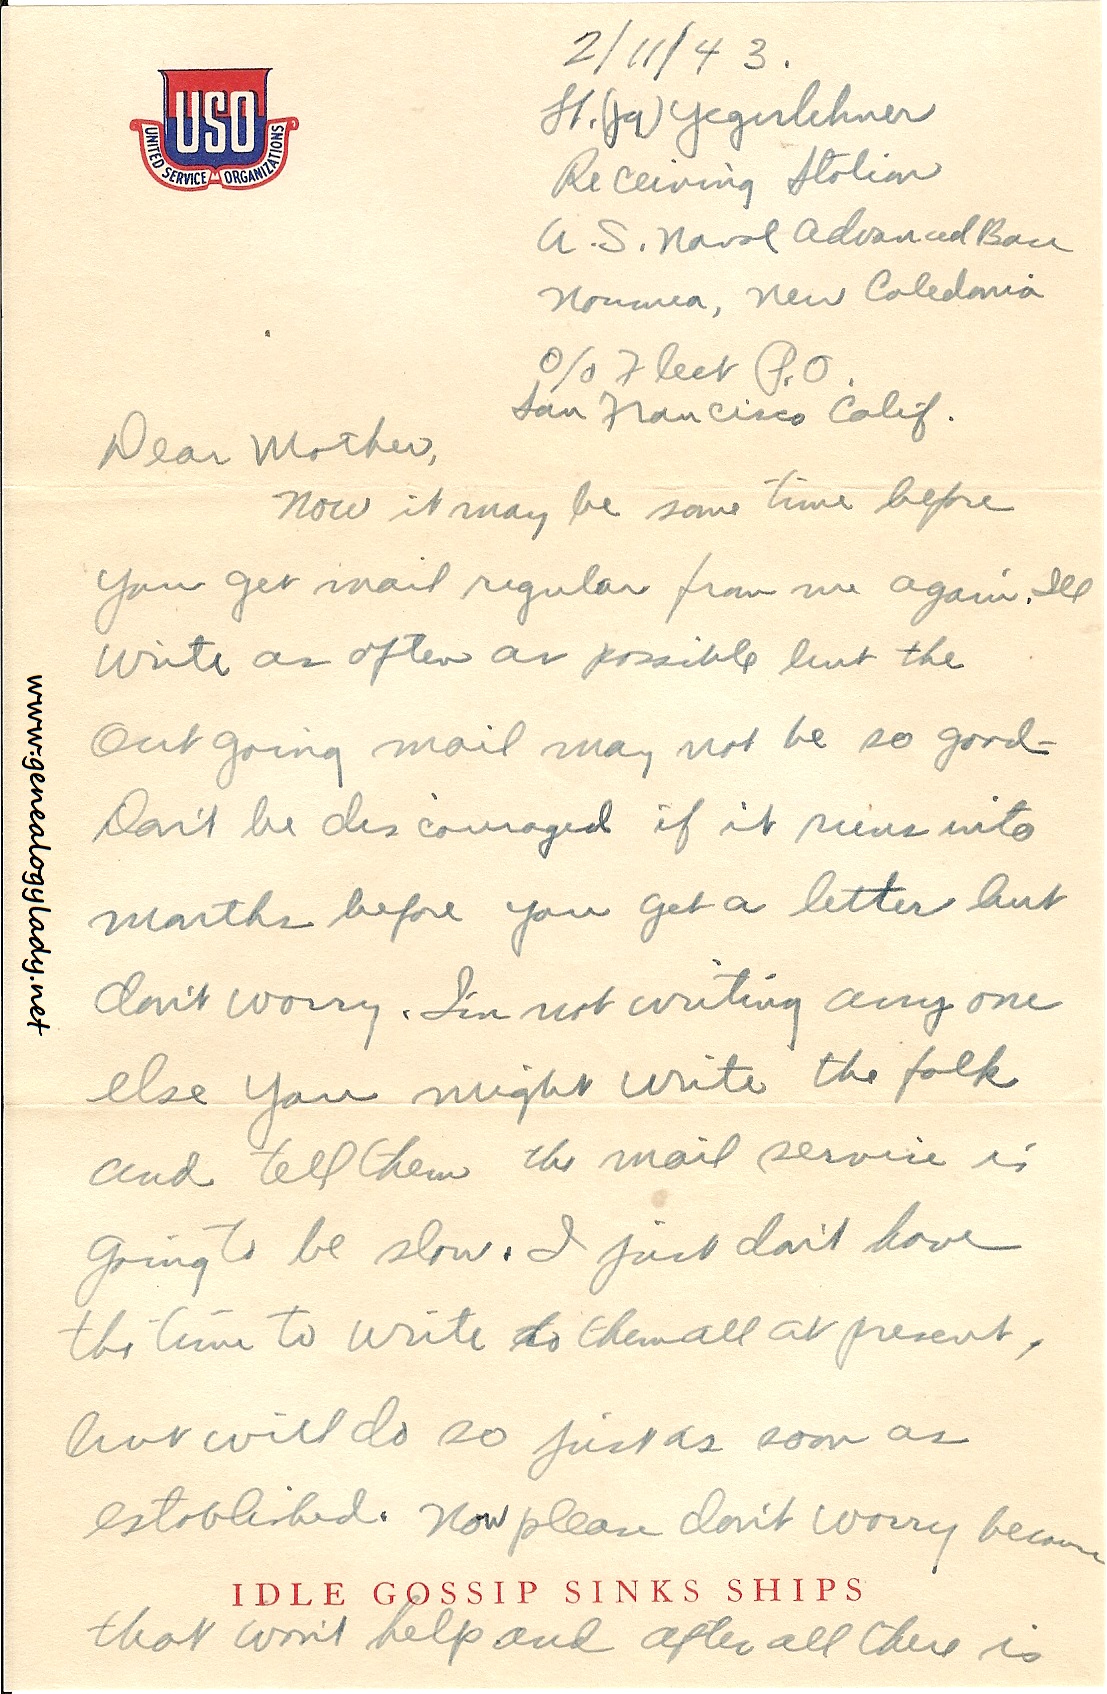 USO
UNITED SERVICE ORGANIZATIONS
2/11/43.
Lt.(jg) Yegerlehner
Receiving Station
U.S. Naval Advanced Base
Noumea, New Caledonia
c/o Fleet P.O.
San Francisco Calif.
Dear Mother,
Now it may be some time before
you get mail regular from me again. Ill
write as often as possible but the
Out going mail may not be so good
Don't be discouraged if it runs into
months before you get a letter but
don't worry. I'm not writing any one
else You might write the folk
and tell them the mail service is
going to be slow. I just don't have
the time to write to them all at present,
but will do so just as soon as
established. Now please don't worry because
IDLE GOSSIP SINKS SHIPS
that won't help and after all there is
www.genealogylady.net